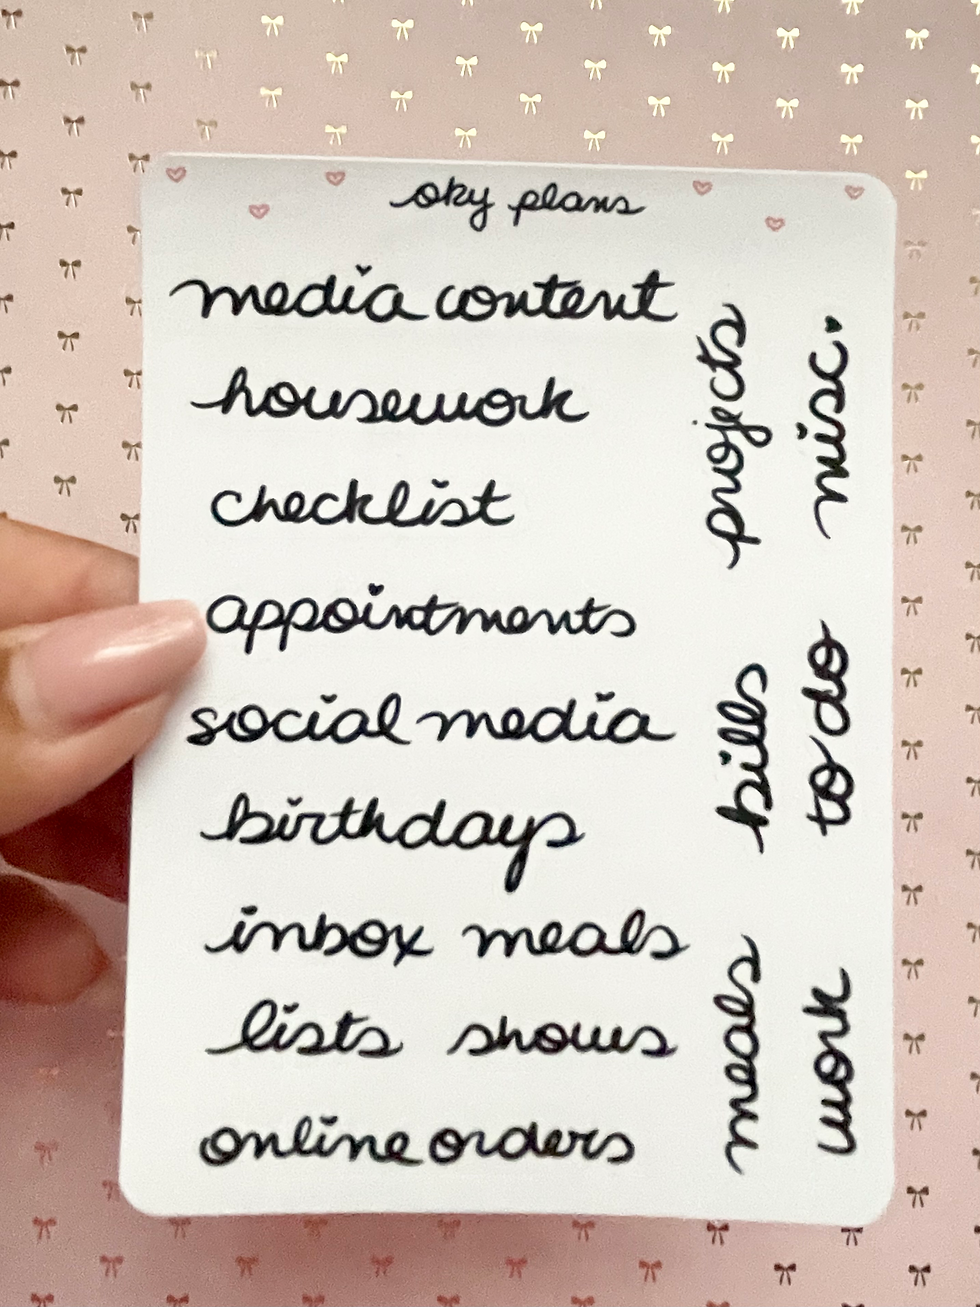 oky plans
media content
housework
checklist
appointments
social media
birthdays
inbox meals
lists shows
online orders
projects
misc.
bills
to do
meals
work